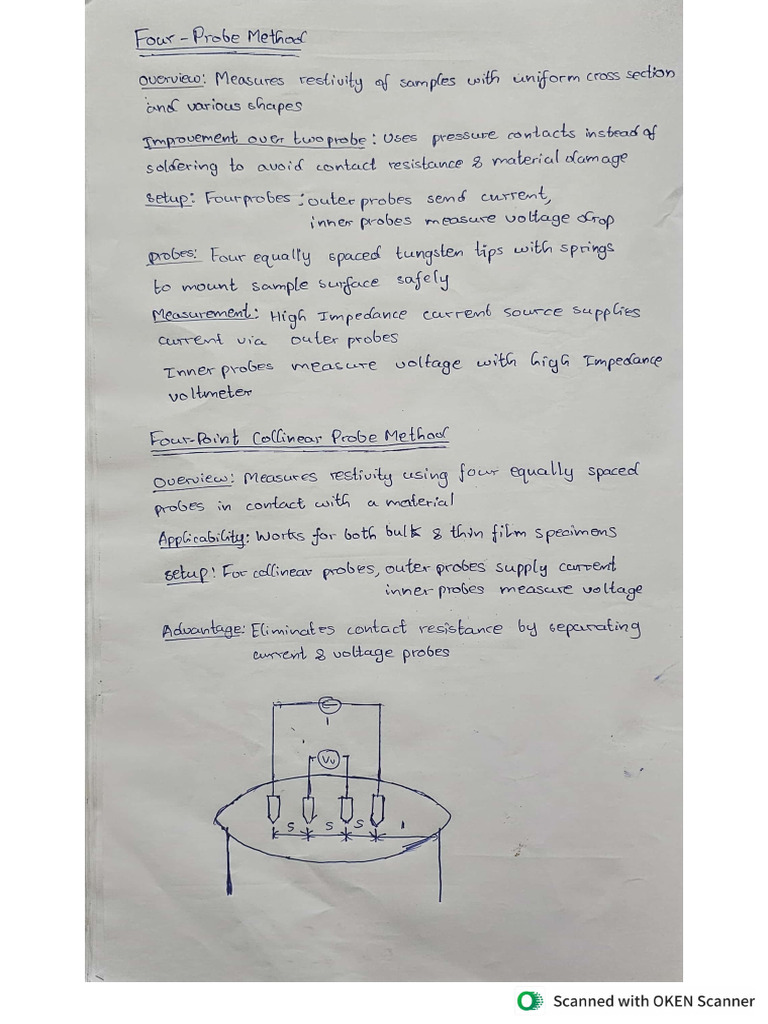 Four-Probe Method
Overview: Measures restivity of samples with uniform cross section
and various shapes
Improvement over two probe: Uses pressure contacts instead of
soldering to avoid contact resistance & material damage
Setup: Four probes: outer probes send current,
inner probes measure voltage drop
Probes: Four equally spaced tungsten tips with springs
to mount sample surface safely
Measurement: High Impedance current source supplies
current via outer probes
Inner probes measure voltage with high Impedance
voltmeter
Four-Point Collinear Probe Method
Overview: Measures restivity using four equally spaced
probes in contact with a material
Applicability: Works for both bulk & thin film specimens
Setup: For collinear probes, outer probes supply current
inner probes measure voltage
Advantage: Eliminates contact resistance by separating
current & voltage probes
I
Vv
S S S
Scanned with OKEN Scanner